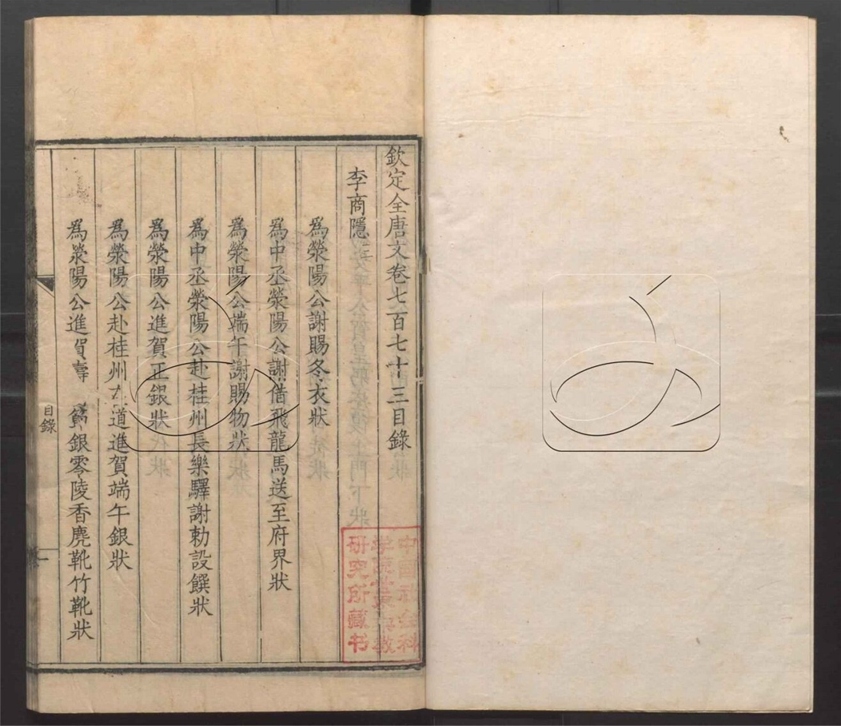 欽定全唐文卷七百七十三目錄
李商隱
爲滎陽公謝賜冬衣狀
爲中丞滎陽公謝借飛龍馬送至府界狀
爲滎陽公端午謝賜物狀
爲中丞滎陽公赴桂州長樂驛謝勅設饌狀
爲滎陽公進賀正銀狀
爲滎陽公赴桂州道進賀端午銀狀
爲滎陽公進賀壽銀零陵香麂靴竹靴狀
目錄
中國社会科
学院世界宗教
研究所藏书